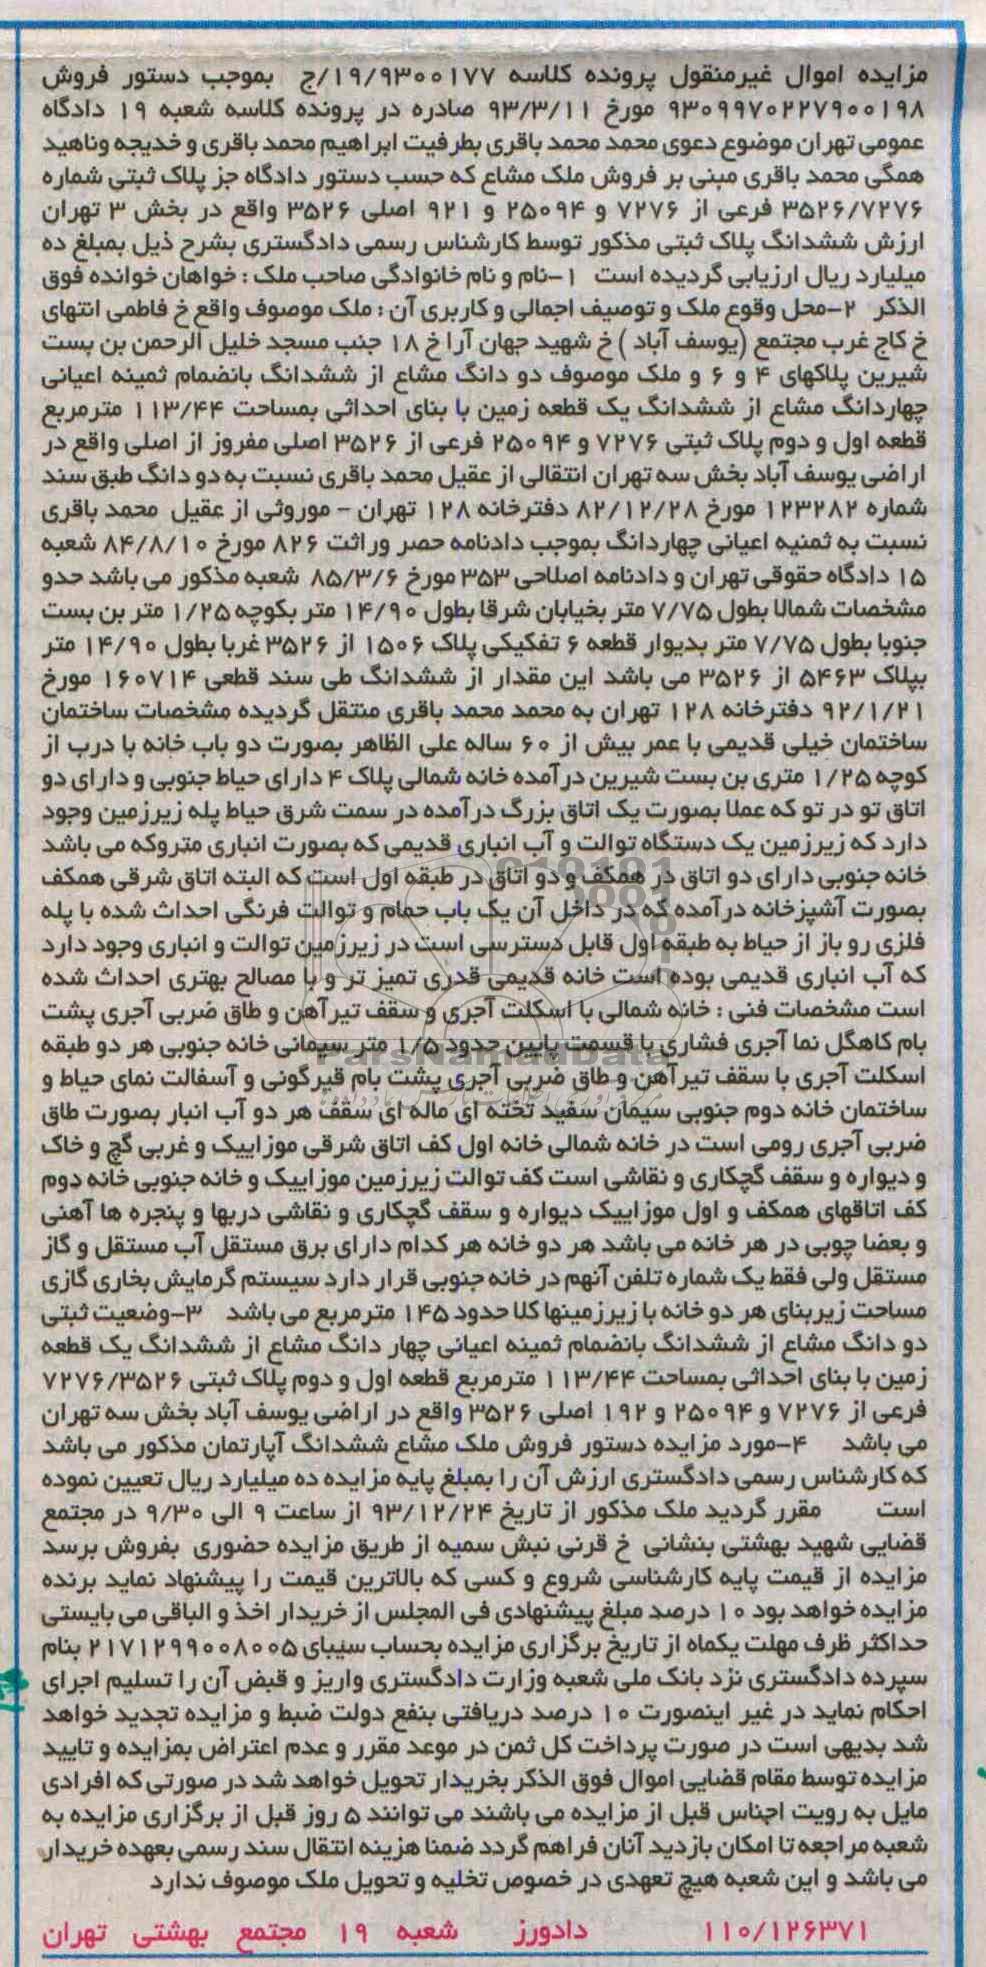 مزایده اموال غیرمنقول پرونده کلاسه ۱۹/۹۳۰۰۱۷۷/ج بموجب دستور فروش
۹۳۰۹۹۷۰۲۲۷۹۰۰۱۹۸ مورخ ۹۳/۳/۱۱ صادره در پرونده کلاسه شعبه ۱۹ دادگاه
عمومی تهران موضوع دعوی محمد محمد باقری بطرفیت ابراهیم محمد باقری و خدیجه وناهید
همگی محمد باقری مبنی بر فروش ملک مشاع که حسب دستور دادگاه جز پلاک ثبتی شماره
۳۵۲۶/۷۲۷۶ فرعی از ۷۲۷۶ و ۲۵۰۹۴ و ۹۲۱ اصلی ۳۵۲۶ واقع در بخش ۳ تهران
ارزش ششدانگ پلاک ثبتی مذکور توسط کارشناس رسمی دادگستری بشرح ذیل بمبلغ ده
میلیارد ریال ارزیابی گردیده است ۱-نام و نام خانوادگی صاحب ملک : خواهان خوانده فوق
الذکر ۲-محل وقوع ملک و توصیف اجمالی و کاربری آن : ملک موصوف واقع خ فاطمی انتهای
خ کاج غرب مجتمع (یوسف آباد ) خ شهید جهان آرا خ ۱۸ جنب مسجد خلیل الرحمن بن بست
شیرین پلاکهای ۴ و ۶ و ملک موصوف دو دانگ مشاع از ششدانگ بانضمام ثمینه اعیانی
چهاردانگ مشاع از ششدانگ یک قطعه زمین با بنای احداثی بمساحت ۱۱۳/۴۴ مترمربع
قطعه اول و دوم پلاک ثبتی ۷۲۷۶ و ۲۵۰۹۴ فرعی از ۳۵۲۶ اصلی مفروز از اصلی واقع در
اراضی یوسف آباد بخش سه تهران انتقالی از عقیل محمد باقری نسبت به دو دانگ طبق سند
شماره ۱۲۳۲۸۲ مورخ ۸۲/۱۲/۲۸ دفترخانه ۱۲۸ تهران - موروثی از عقیل محمد باقری
نسبت به ثمنیه اعیانی چهاردانگ بموجب دادنامه حصر وراثت ۸۲۶ مورخ ۸۴/۸/۱۰ شعبه
۱۵ دادگاه حقوقی تهران و دادنامه اصلاحی ۳۵۳ مورخ ۸۵/۳/۶ شعبه مذکور می باشد حدو
مشخصات شمالا بطول ۷/۷۵ متر بخیابان شرقا بطول ۱۴/۹۰ متر بکوچه ۱/۲۵ متر بن بست
جنوبا بطول ۷/۷۵ متر بدیوار قطعه ۶ تفکیکی پلاک ۱۵۰۶ از ۳۵۲۶ غربا بطول ۱۴/۹۰ متر
بپلاک ۵۴۶۳ از ۳۵۲۶ می باشد این مقدار از ششدانگ طی سند قطعی ۱۶۰۷۱۴ مورخ
۹۲/۱/۲۱ دفترخانه ۱۲۸ تهران به محمد محمد باقری منتقل گردیده مشخصات ساختمان
ساختمان خیلی قدیمی با عمر بیش از ۶۰ ساله علی الظاهر بصورت دو باب خانه با درب از
کوچه ۱/۲۵ متری بن بست شیرین درآمده خانه شمالی پلاک ۴ دارای حیاط جنوبی و دارای دو
اتاق تو در تو که عملا بصورت یک اتاق بزرگ درآمده در سمت شرق حیاط پله زیرزمین وجود
دارد که زیرزمین یک دستگاه توالت و آب انباری قدیمی که بصورت انباری متروکه می باشد
خانه جنوبی دارای دو اتاق در همکف و دو اتاق در طبقه اول است که البته اتاق شرقی همکف
بصورت آشپزخانه درآمده که در داخل آن یک باب حمام و توالت فرنگی احداث شده با پله
فلزی رو باز از حیاط به طبقه اول قابل دسترسی است در زیرزمین توالت و انباری وجود دارد
که آب انباری قدیمی بوده است خانه قدیمی قدری تمیز تر و با مصالح بهتری احداث شده
است مشخصات فنی : خانه شمالی با اسکلت آجری و سقف تیرآهن و طاق ضربی آجری پشت
بام کاهگل نما آجری فشاری با قسمت پایین حدود ۱/۵ متر سیمانی خانه جنوبی هر دو طبقه
اسکلت آجری با سقف تیرآهن و طاق ضربی آجری پشت بام قیرگونی و آسفالت نمای حیاط و
ساختمان خانه دوم جنوبی سیمان سفید تخته ای ماله ای سقف هر دو آب انبار بصورت طاق
ضربی آجری رومی است در خانه شمالی خانه اول کف اتاق شرقی موزاییک و غربی گچ و خاک
و دیواره و سقف گچکاری و نقاشی است کف توالت زیرزمین موزاییک و خانه جنوبی خانه دوم
کف اتاقهای همکف و اول موزاییک دیواره و سقف گچکاری و نقاشی دربها و پنجره ها آهنی
و بعضا چوبی در هر خانه می باشد هر دو خانه هر کدام دارای برق مستقل آب مستقل و گاز
مستقل ولی فقط یک شماره تلفن آنهم در خانه جنوبی قرار دارد سیستم گرمایش بخاری گازی
مساحت زیربنای هر دو خانه با زیرزمینها کلا حدود ۱۴۵ مترمربع می باشد ۳-وضعیت ثبتی
دو دانگ مشاع از ششدانگ بانضمام ثمینه اعیانی چهار دانگ مشاع از ششدانگ یک قطعه
زمین با بنای احداثی بمساحت ۱۱۳/۴۴ مترمربع قطعه اول و دوم پلاک ثبتی ۷۲۷۶/۳۵۲۶
فرعی از ۷۲۷۶ و ۲۵۰۹۴ و ۱۹۲ اصلی ۳۵۲۶ واقع در اراضی یوسف آباد بخش سه تهران
می باشد ۴-مورد مزایده دستور فروش ملک مشاع ششدانگ آپارتمان مذکور می باشد
که کارشناس رسمی دادگستری ارزش آن را بمبلغ پایه مزایده ده میلیارد ریال تعیین نموده
است مقرر گردید ملک مذکور از تاریخ ۹۳/۱۲/۲۴ از ساعت ۹ الی ۹/۳۰ در مجتمع
قضایی شهید بهشتی بنشانی خ قرنی نبش سمیه از طریق مزایده حضوری بفروش برسد
مزایده از قیمت پایه کارشناسی شروع و کسی که بالاترین قیمت را پیشنهاد نماید برنده
مزایده خواهد بود ۱۰ درصد مبلغ پیشنهادی فی المجلس از خریدار اخذ و الباقی می بایستی
حداکثر ظرف مهلت یکماه از تاریخ برگزاری مزایده بحساب سیبای ۲۱۷۱۲۹۹۰۰۸۰۰۵ بنام
سپرده دادگستری نزد بانک ملی شعبه وزارت دادگستری واریز و قبض آن را تسلیم اجرای
احکام نماید در غیر اینصورت ۱۰ درصد دریافتی بنفع دولت ضبط و مزایده تجدید خواهد
شد بدیهی است در صورت پرداخت کل ثمن در موعد مقرر و عدم اعتراض بمزایده و تایید
مزایده توسط مقام قضایی اموال فوق الذکر بخریدار تحویل خواهد شد در صورتی که افرادی
مایل به رویت اجناس قبل از مزایده می باشند می توانند ۵ روز قبل از برگزاری مزایده به
شعبه مراجعه تا امکان بازدید آنان فراهم گردد ضمنا هزینه انتقال سند رسمی بعهده خریدار
می باشد و این شعبه هیچ تعهدی در خصوص تخلیه و تحویل ملک موصوف ندارد
۱۱۰/۱۲۶۳۷۱ دادورز شعبه ۱۹ مجتمع بهشتی تهران
ParsNamadData